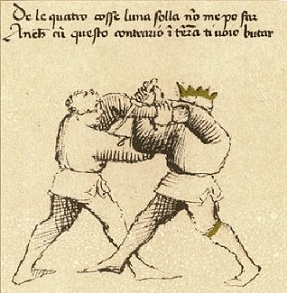 De le quatro cosse luna solla no me po far
Anch cu questo contrario i terra ti voio butar